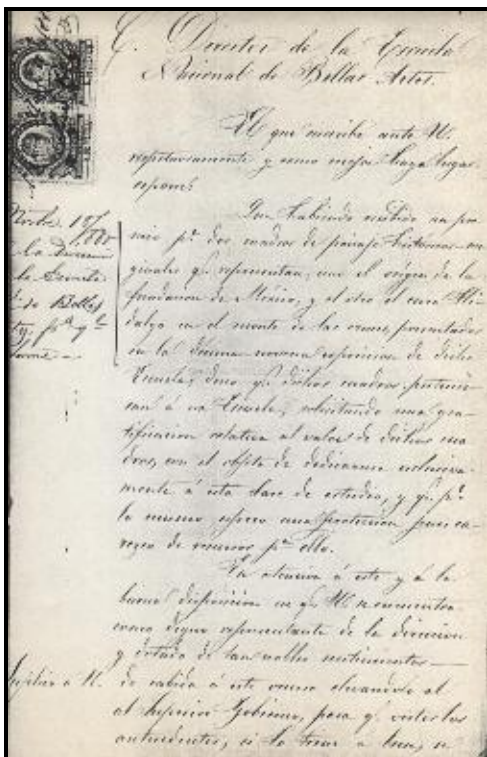 C. Director de la Escuela
Nacional de Bellas Artes.
El que suscribe ante U.
respetuosamente y como mejor haya lugar
espone:
Que habiendo recibido un pre
mio pr. dos cuadros de paisaje históricos ori
ginales q. representan, uno el origen de la
fundacion de México, y el otro el cura Hi
dalgo en el monte de las cruces, presentados
en la décima novena esposicion de dicha
Escuela, deseo q. dichos cuadros pertenez
can á esa Escuela, solicitando una gra
tificacion relativa al valor de dichos cua
dros, con el objeto de dedicarme esclusiva
mente á esta clase de estudio, y q. pr.
lo mismo espero una proteccion pues ca
rezco de recursos pa. ello.
En atencion á esto y á la
buena disposicion en q. U. se encuentra
como digno representante de la direccion
y dotado de tan nobles sentimientos
Suplico a U. dé cabida á este ocurso elevandolo al
al Supremo Gobierno, para q. vistos los
antecedentes, si lo tiene a bien, se
Novbre. 18
la
la Escuela
de Bellas
pa. q.
informe